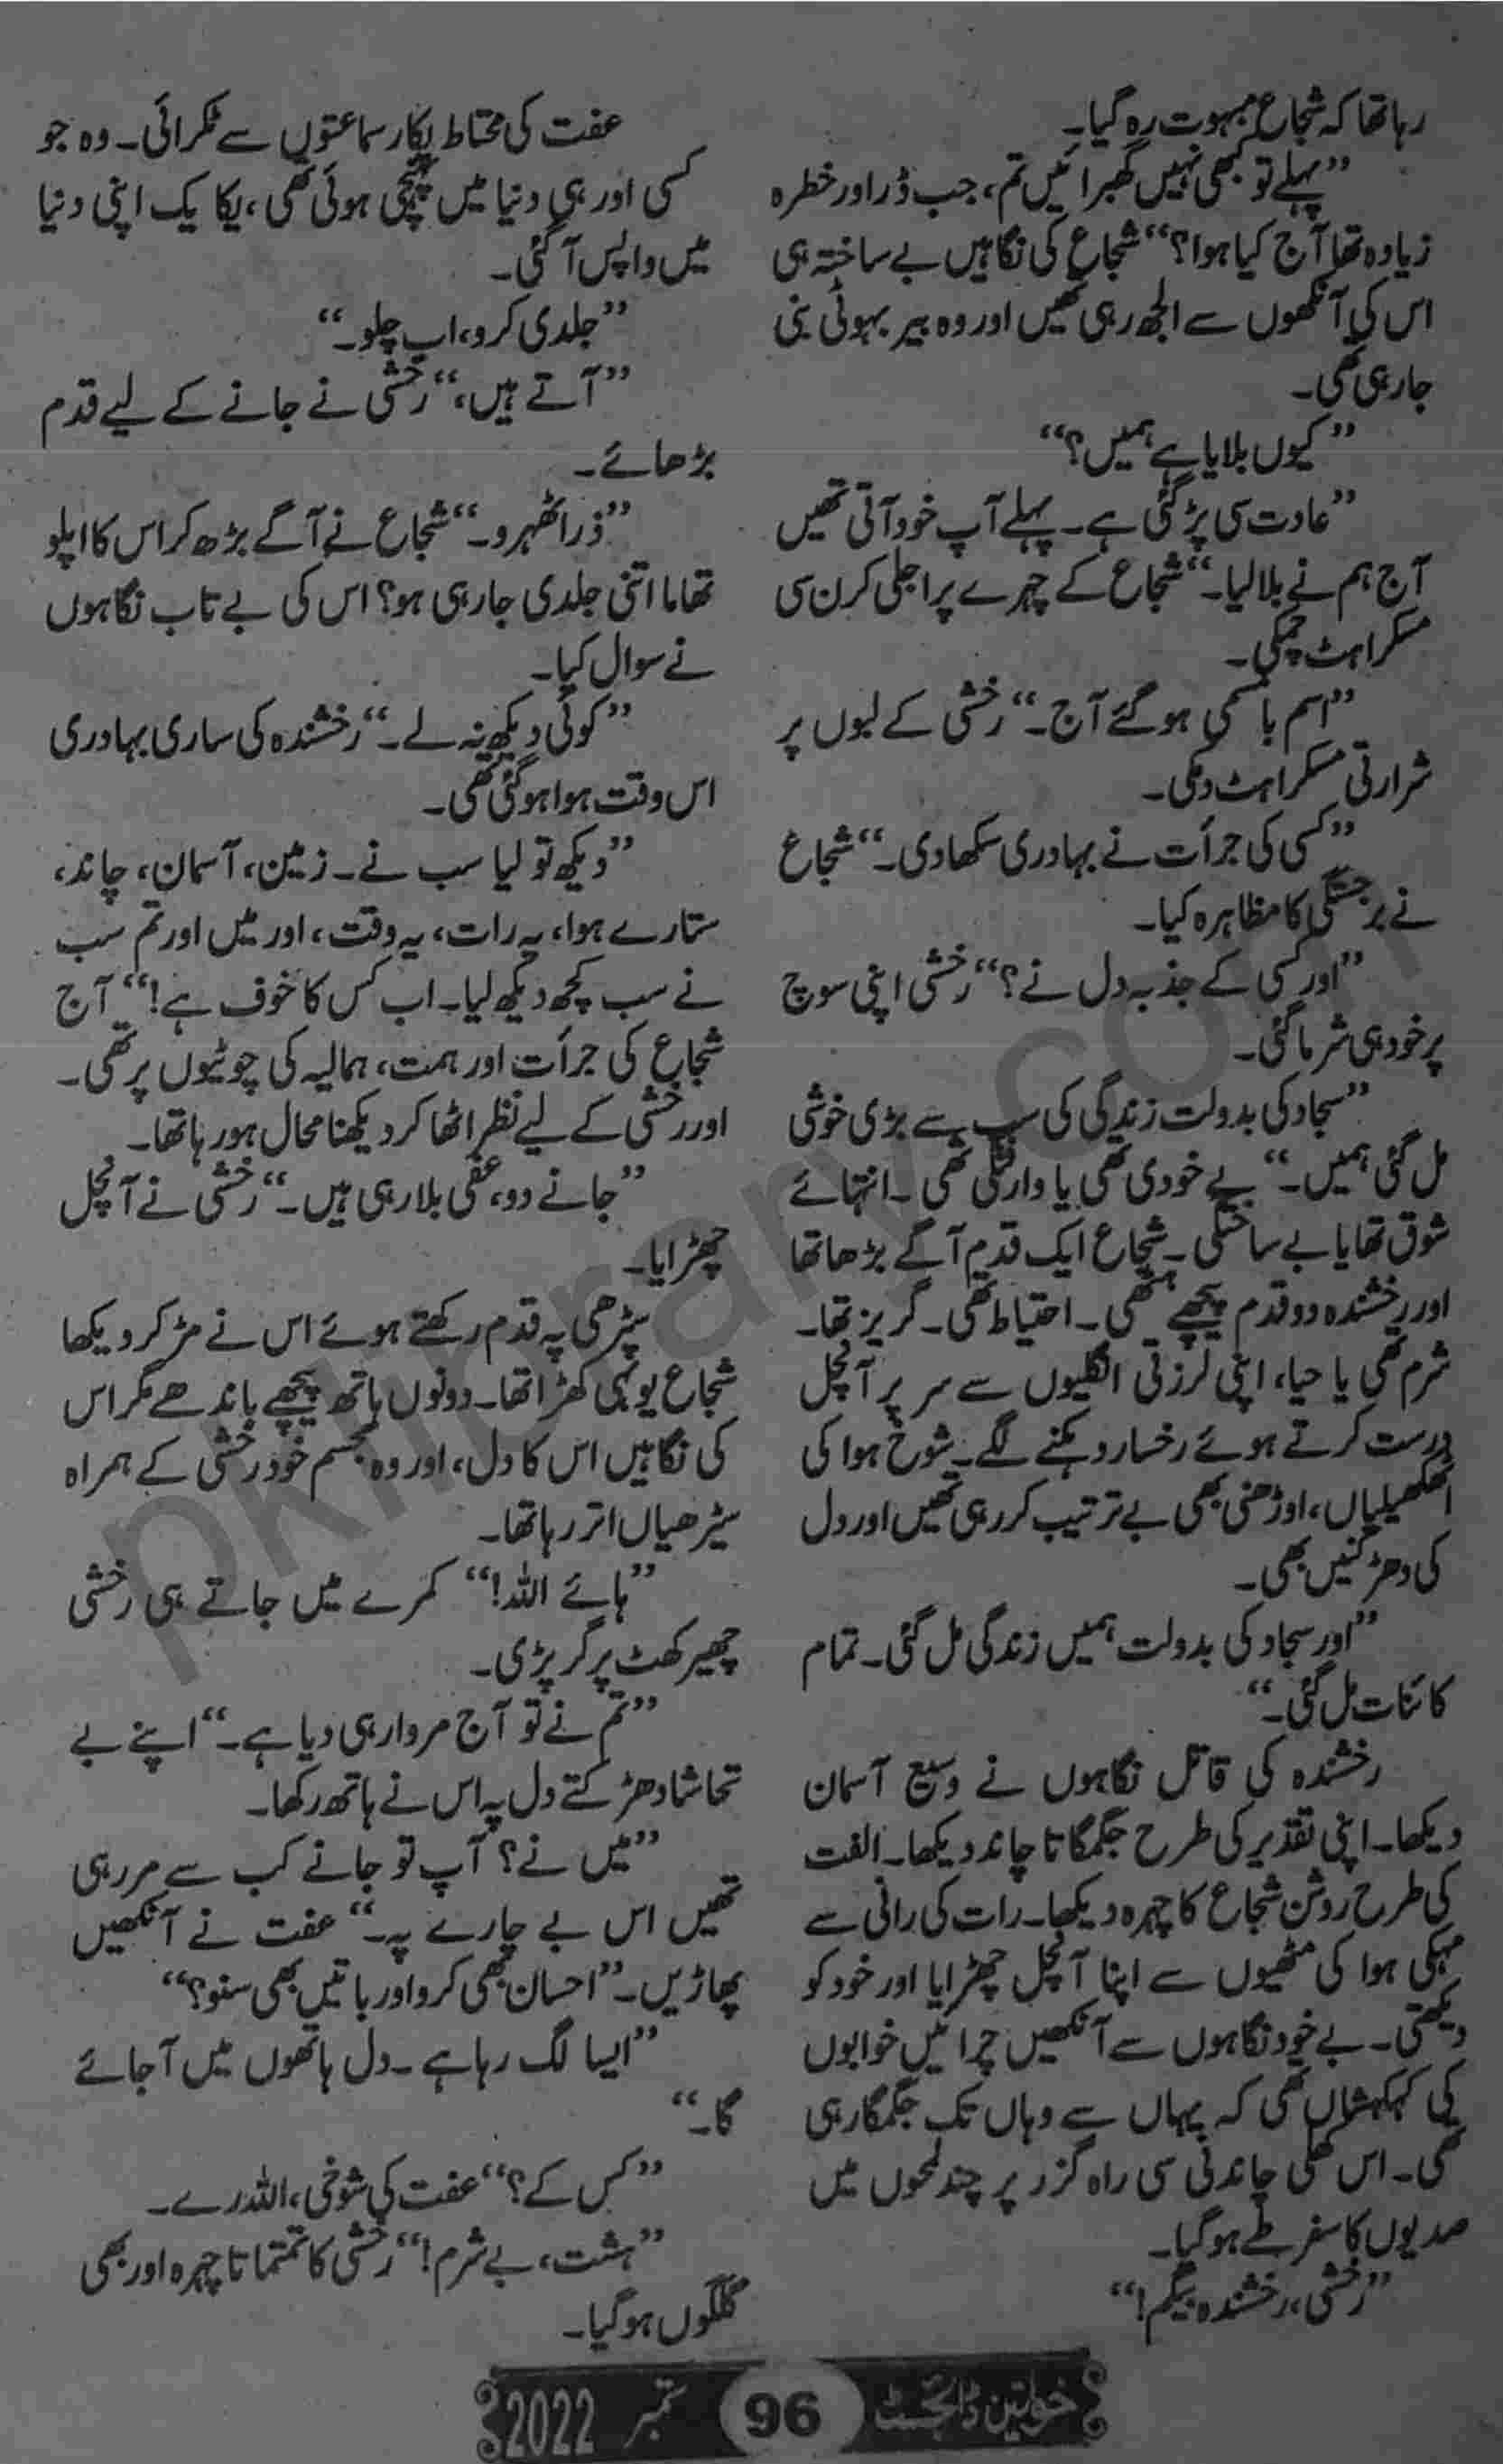 رہا تھا کہ شجاع مبہوت رہ گیا۔
”پہلے تو کبھی نہیں گھبرائیں تم، جب ڈر اور خطرہ
زیادہ تھا آج کیا ہوا؟“ شجاع کی نگاہیں بے ساختہ ہی
اس کی آنکھوں سے الجھ رہی تھیں اور وہ بیر بہوٹی بنی
جا رہی تھی۔
”کیوں بلایا ہے ہمیں؟“
”عادت سی پڑ گئی ہے۔ پہلے آپ خود آتی تھیں
آج ہم نے بلا لیا۔“ شجاع کے چہرے پر اجلی کرن سی
مسکراہٹ چمکی۔
”اسم بامسمی ہو گئے آج۔“ رخشی کے لبوں پر
شرارتی مسکراہٹ دمکی۔
”کسی کی جرأت نے بہادری سکھا دی۔“ شجاع
نے برجستگی کا مظاہرہ کیا۔
”اور کسی کے جذبہ دل نے؟“ رخشی اپنی سوچ
پر خود ہی شرما گئی۔
”سجاد کی بدولت زندگی کی سب سے بڑی خوشی
مل گئی ہمیں۔“ بے خودی تھی یا وارفتگی تھی۔ انتہائے
شوق تھا یا بے ساختگی۔ شجاع ایک قدم آگے بڑھا تھا
اور رخشندہ دو قدم پیچھے ہٹی تھی۔ احتیاط تھی۔ گریز تھا۔
شرم تھی یا حیا، اپنی لرزتی انگلیوں سے سر پر آنچل
درست کرتے ہوئے رخسار دہکنے لگے۔ شوخ ہوا کی
اٹکھیلیاں، اوڑھنی بھی بے ترتیب کر رہی تھیں اور دل
کی دھڑکنیں بھی۔
”اور سجاد کی بدولت ہمیں زندگی مل گئی۔ تمام
کائنات مل گئی۔“
رخشندہ کی قاتل نگاہوں نے وسیع آسمان
دیکھا۔ اپنی تقدیر کی طرح جگمگاتا چاند دیکھا۔ الفت
کی طرح روشن شجاع کا چہرہ دیکھا۔ رات کی رانی سے
مہکی ہوا کی مٹھیوں سے اپنا آنچل چھڑایا اور خود کو
دیکھتی۔ بے خود نگاہوں سے آنکھیں چرائیں خوابوں
کی کہکشاں تھی کہ یہاں سے وہاں تک جگمگا رہی
تھی۔ اس گھلی چاندنی سی راہ گزر پر چند لمحوں میں
صدیوں کا سفر طے ہو گیا۔
”رخشی، رخشندہ بیگم!“
عفت کی محتاط پکار سماعتوں سے ٹکرائی۔ وہ جو
کسی اور ہی دنیا میں پہنچی ہوئی تھی، یکایک اپنی دنیا
میں واپس آ گئی۔
”جلدی کرو، اب چلو۔“
”آتے ہیں،“ رخشی نے جانے کے لیے قدم
بڑھائے۔
”ذرا ٹھہرو۔“ شجاع نے آگے بڑھ کر اس کا پلو
تھاما اتنی جلدی جا رہی ہو؟ اس کی بے تاب نگاہوں
نے سوال کیا۔
”کوئی دیکھ نہ لے۔“ رخشندہ کی ساری بہادری
اس وقت ہوا ہو گئی تھی۔
”دیکھ تو لیا سب نے۔ زمین، آسمان، چاند،
ستارے ہوا، یہ رات، یہ وقت، اور میں اور تم سب
نے سب کچھ دیکھ لیا۔ اب کس کا خوف ہے!“ آج
شجاع کی جرأت اور ہمت، ہمالیہ کی چوٹیوں پر تھی۔
اور رخشی کے لیے نظر اٹھا کر دیکھنا محال ہو رہا تھا۔
”جانے دو، عفی بلا رہی ہیں۔“ رخشی نے آنچل
چھڑایا۔
سیڑھی پہ قدم رکھتے ہوئے اس نے مڑ کر دیکھا
شجاع یونہی کھڑا تھا۔ دونوں ہاتھ پیچھے باندھے مگر اس
کی نگاہیں اس کا دل، اور وہ مجسم خود رخشی کے ہمراہ
سیڑھیاں اتر رہا تھا۔
”ہائے اللہ!“ کمرے میں جاتے ہی رخشی
چھپر کھٹ پر گر پڑی۔
”تم نے تو آج مروا ہی دیا ہے۔“ اپنے بے
تحاشا دھڑکتے دل پہ اس نے ہاتھ رکھا۔
”میں نے؟ آپ تو جانے کب سے مر رہی
تھیں اس بے چارے پہ۔“ عفت نے آنکھیں
پھاڑیں۔ ”احسان بھی کرو اور باتیں بھی سنو؟“
”ایسا لگ رہا ہے۔ دل ہاتھوں میں آ جائے
گا۔“
”کس کے؟“ عفت کی شوخی، اللہ رے۔
”ہشت، بے شرم!“ رخشی کا تمتماتا چہرہ اور بھی
گلگوں ہو گیا۔
خواتین ڈائجسٹ 96 ستمبر 2022